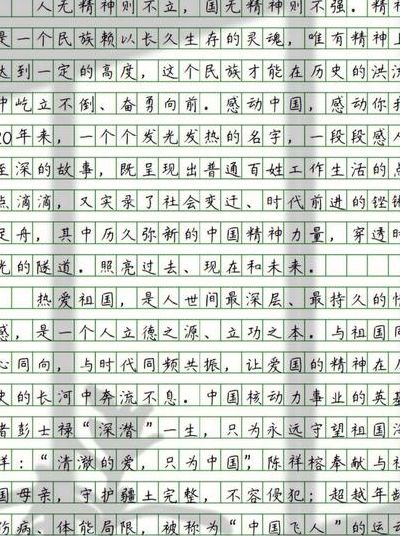 人无精神则不立，国无精神则不强。精神
是一个民族赖以长久生存的灵魂，唯有精神上
达到一定的高度，这个民族才能在历史的洪流
中屹立不倒、奋勇向前。感动中国，感动你我
20年来，一个个发光发热的名字，一段段感人
至深的故事，既呈现出普通百姓工作生活的点
点滴滴，又实录了社会变迁、时代前进的铿锵
足舟，其中历久弥新的中国精神力量，穿透时
光的隧道。照亮过去、现在和未来。
热爱祖国，是人世间最深层、最持久的情
感，是一个人立德之源、立功之本。与祖国同
心同向，与时代同频共振，让爱国的精神在历
史的长河中奔流不息。中国核动力事业的英基
者彭士禄“深潜”一生，只为永远守望祖国海
洋：“清澈的爱，只为中国”，陈祥榕奉献与祖
国母亲，守护疆土完整，不容侵犯；超越年龄
伤病、体能局限，被称为“中国飞人”的运动